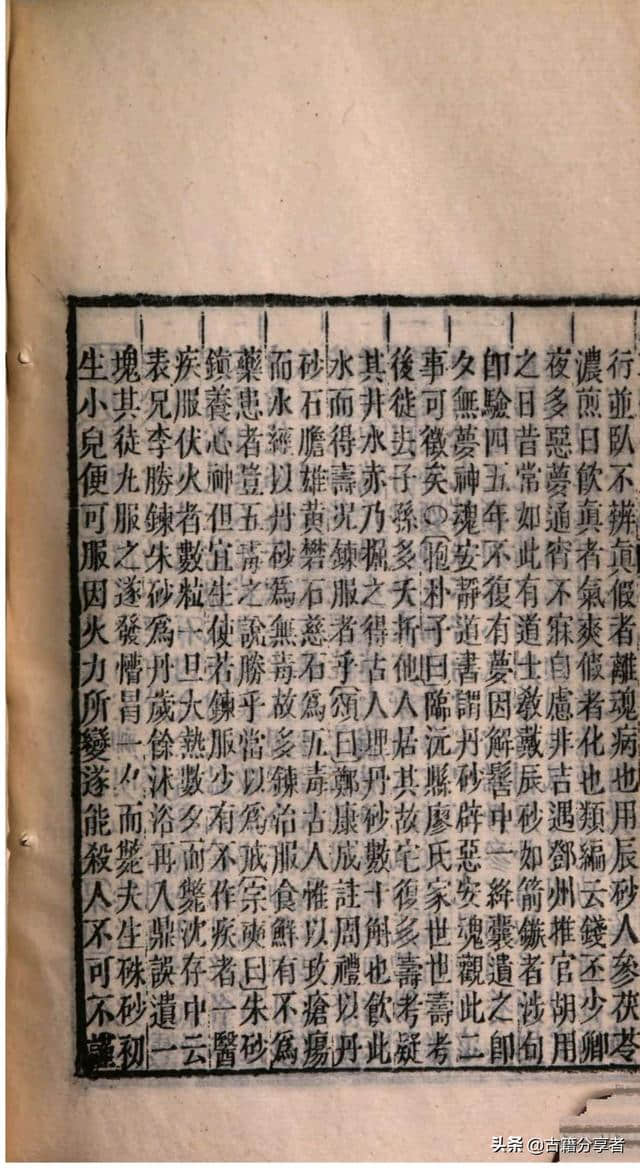 行並臥不辨真假者離魂病也用辰砂人參茯苓
濃煎日飲真者氣爽假者化也類編云錢丕少卿
夜多惡夢通宵不寐自慮非吉遇鄧州推官胡用
之日昔常如此有道士教戴辰砂如箭鏃者涉旬
卽驗四五年不復有夢因解髻中一絳囊遺之卽
夕無夢神魂安靜道書謂丹砂辟惡安魂觀此二
事可徵矣○抱朴子曰臨沅縣廖氏家世也壽考
後徙去子孫多夭折他人居其故宅復多壽考疑
其井水赤乃掘之得古人埋丹砂數十斛也飲此
水而得壽況鍊服者乎頌曰鄭康成註周禮以丹
砂石膽雄黃礬石慈石爲五毒古人惟以攻瘡瘍
而水經以丹砂爲無毒故多鍊治服食鮮有不爲
藥患者豈五毒之說勝乎當以爲戒宗奭曰朱砂
鎮養心神但宜生使若鍊服少有不作疾者一醫
疾服伏火者數粒一旦大熱數夕而斃沈存中云
表兄李勝鍊朱砂爲丹歲餘沐浴再入鼎誤遺一
塊其徒丸服之遂發懵冒一夕而斃夫生硃砂初
生小兒便可服因火力所變遂能殺人不可不謹
头条 @古籍分享者